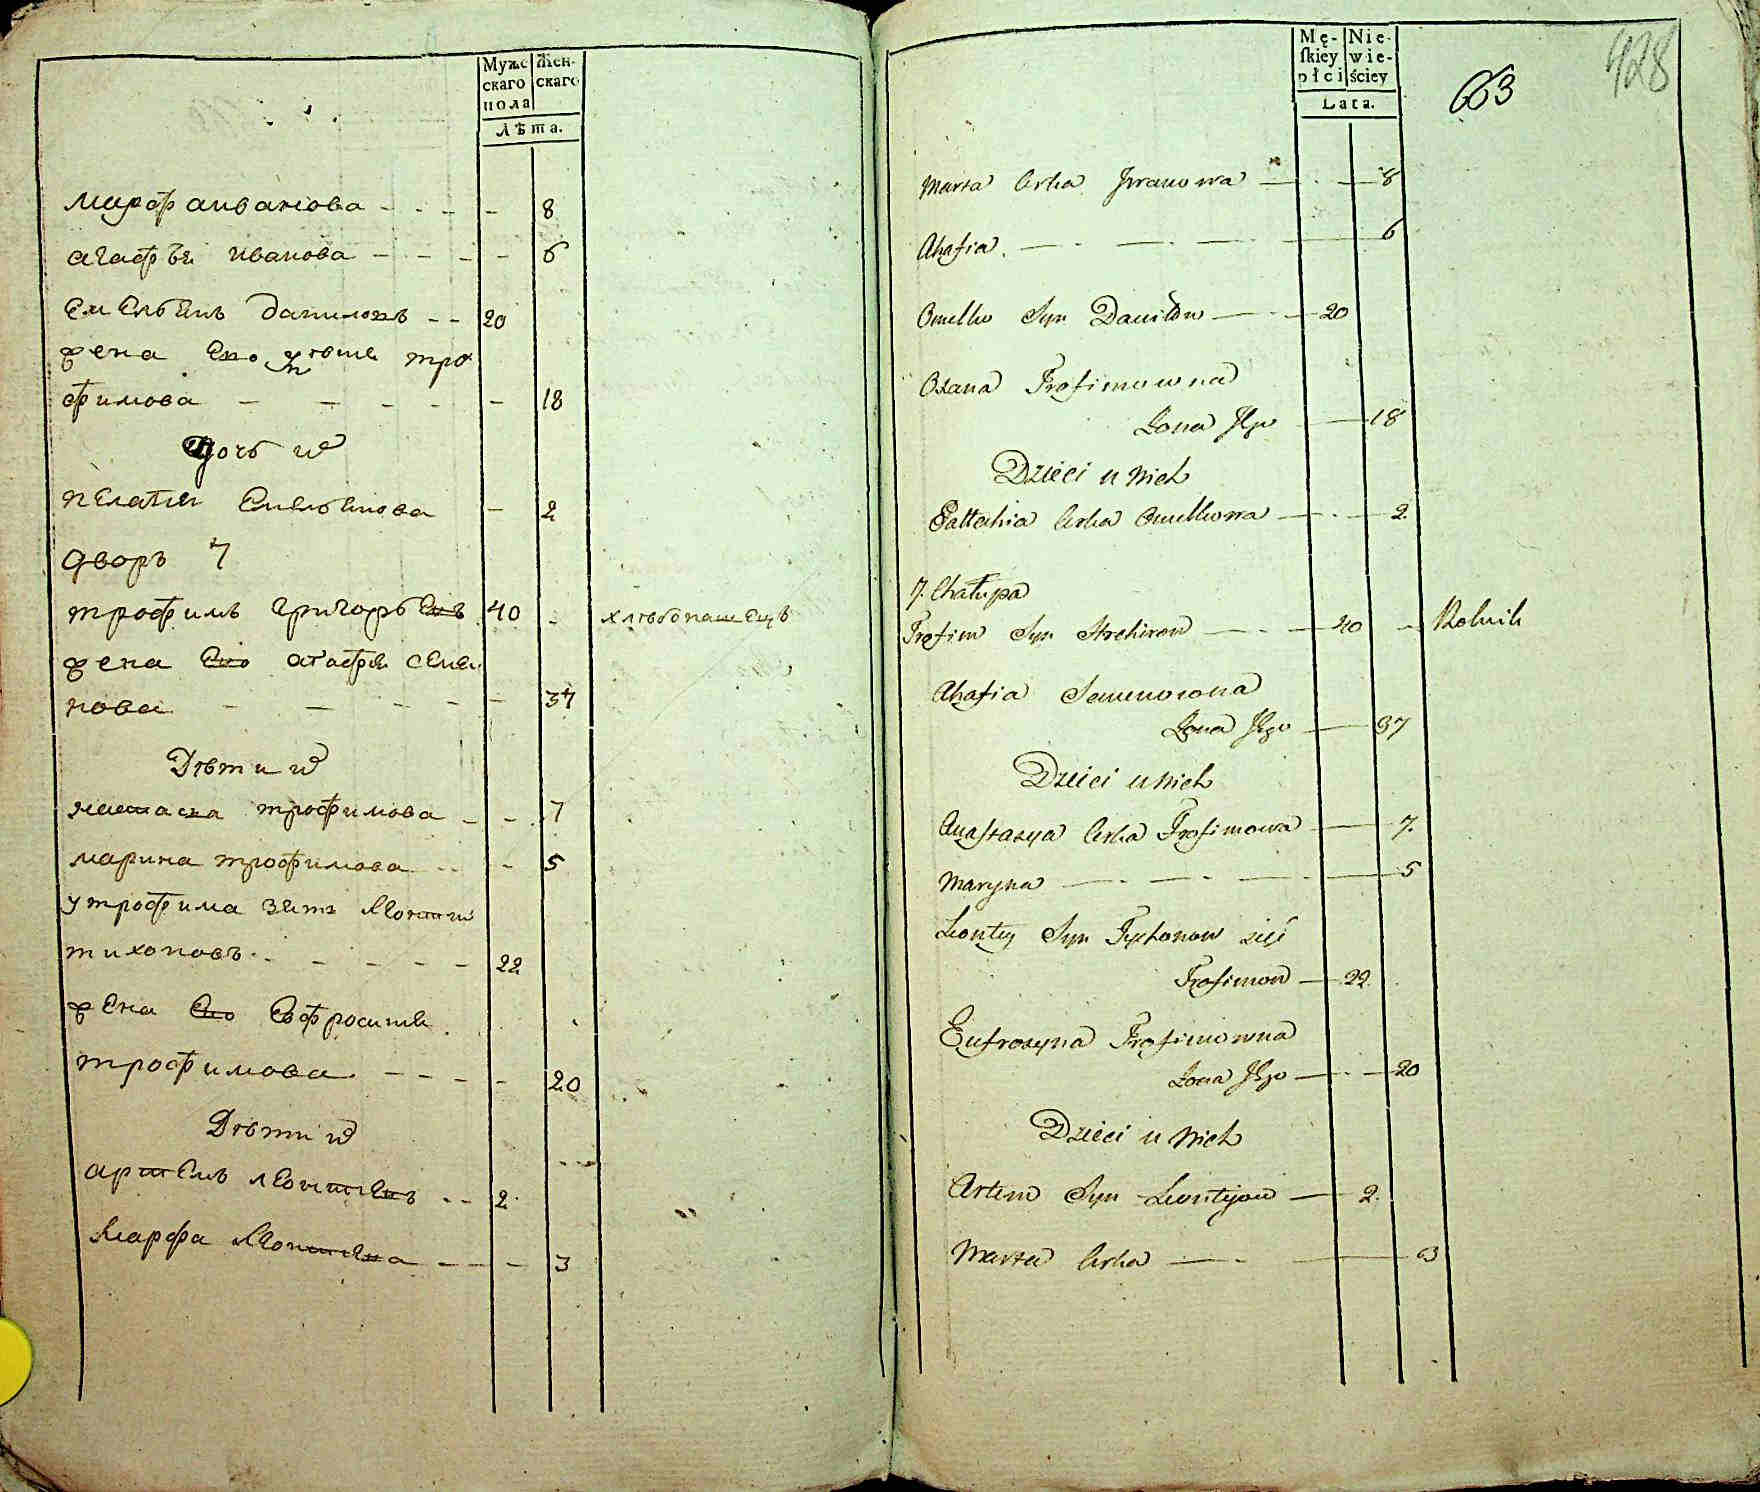 Муже
скаго
пола
Жен-
скаго
Лѣта.
Марфа иванова - - - - 8
агафья иванова - - - - 6
Емельянъ даниловъ - - 20
жена его устинья тро
фимова - - - - - 18
Дочь их
пелагия Емельянова - 2
дворъ 7
трофимъ григорьевъ 40 - хлѣбопашецъ
жена его агафья семе
нова - - - - - 37
Дѣти их
настасья трофимова - - 7
марина трофимова - - - 5
у трофима зять Леонтий
тихоновъ - - - - - 22
жена Его Евфросинья
трофимова - - - - 20
Дѣти их
артемъ леонтьевъ - - 2
Марфа Леонтьева - - - 3
Mę-
skiey
płci
Nie-
wie-
ściey
Lata.
663
428
Marta Crka Jwanowa — 8
Ahafia — 6
Omelko Syn Daniłow — 20
Oxana Trofimowna
Żona Jego — 18
Dzieci u Nich
Pałtachia Crka Omelkowa — 2
7. Chałupa
Trofim Syn Hrehirow — 40 — Rolnik
Ahafia Semenowna
Żona Jego — 37
Dzieci u Nich
Anastazya Crka Trofimowa — 7.
Maryna — 5
Leontey Syn Tychonow zięć
Trofimow — 22
Eufrozyna Trofimowna
Żona Jego — 20
Dzieci u Nich
Artem Syn Leontyow — 2.
Marta Crka — 3